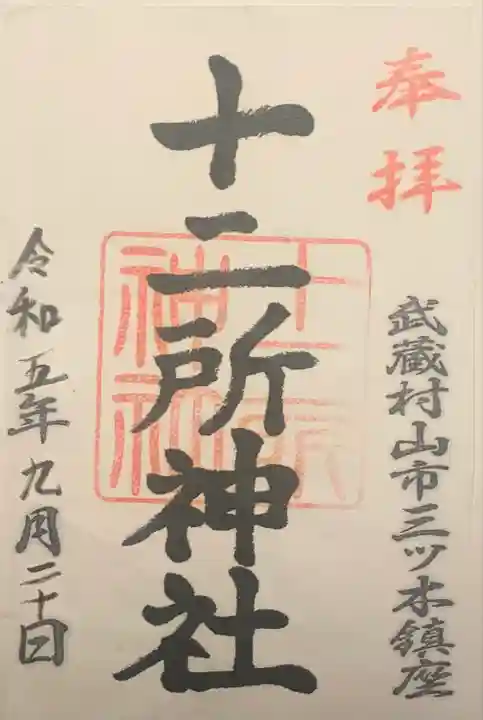 奉拝
武蔵村山市三ツ木鎮座
十二所神社
十二所神社
令和五年九月二十日